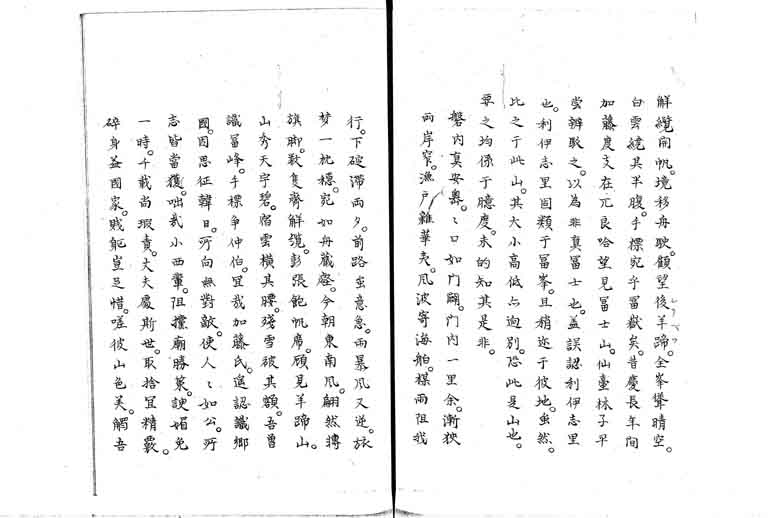 解纜開帆。境移舟駛。顧望後羊蹄。全峯聳晴空。
白雲繞其半腹。手標宛乎冨嶽矣。昔慶長年間
加藤度支在兀良哈望見冨士山。仙臺林子平
嘗辨駁之。以為非真冨士也。蓋誤認利伊志里
也。利伊志里固類于冨峯。且稍近于彼地。虽然。
比之于此山。其大小高低与逈別。恐此是山也。
要之均係于臆度。未的知其是非。
磐內真安奧。〻口如門闢。門內一里余。漸狹
両岸窄。漁戶雜華夷。凮波寄海舶。楳雨阻我
行。下碇滯両夕。前路虽意急。雨暴凮又逆。旅
梦一枕穩。宛如舟藏壑。今朝東南凮。翩然摶
旗脚。數隻齊解纜。彭張飽帆席。顧見羊蹄山。
山秀天宇碧。宿雲橫其腰。殘雪破其額。吾曾
識冨峰。手標争仲伯。宜哉加藤氏。遙認識鄉
國。因思征韓日。所向無對敵。使人〻如公。所
志皆當獲。咄哉小西輩。阻撓廟勝策。諛媚免
一時。千載尚瑕責。丈夫處斯世。取捨宜精覈。
碎身益國家。賤軀豈足惜。嗟彼山色美。觸吾